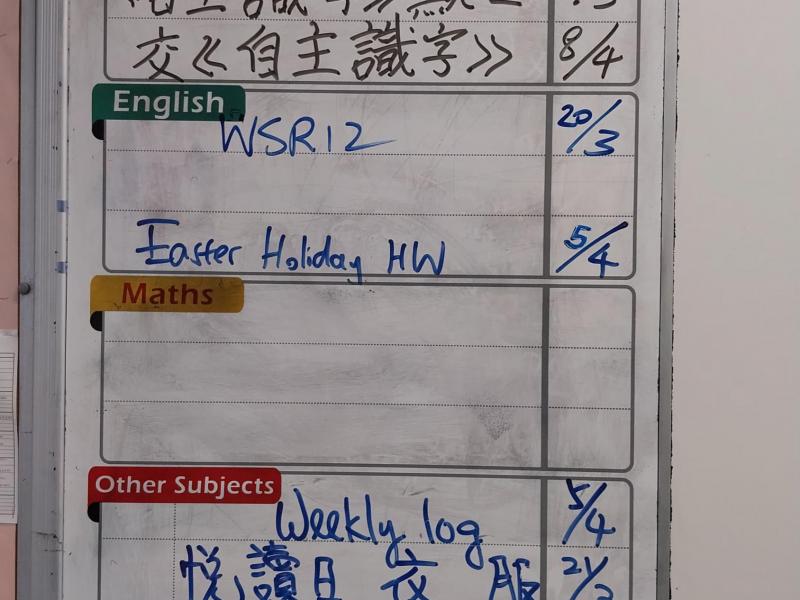 自主識字
交《自主識字》 8/4
English
WSR12 20/3
Easter Holiday HW 5/4
Maths
Other Subjects
Weekly log 5/4
悅讀日 交 服 21/